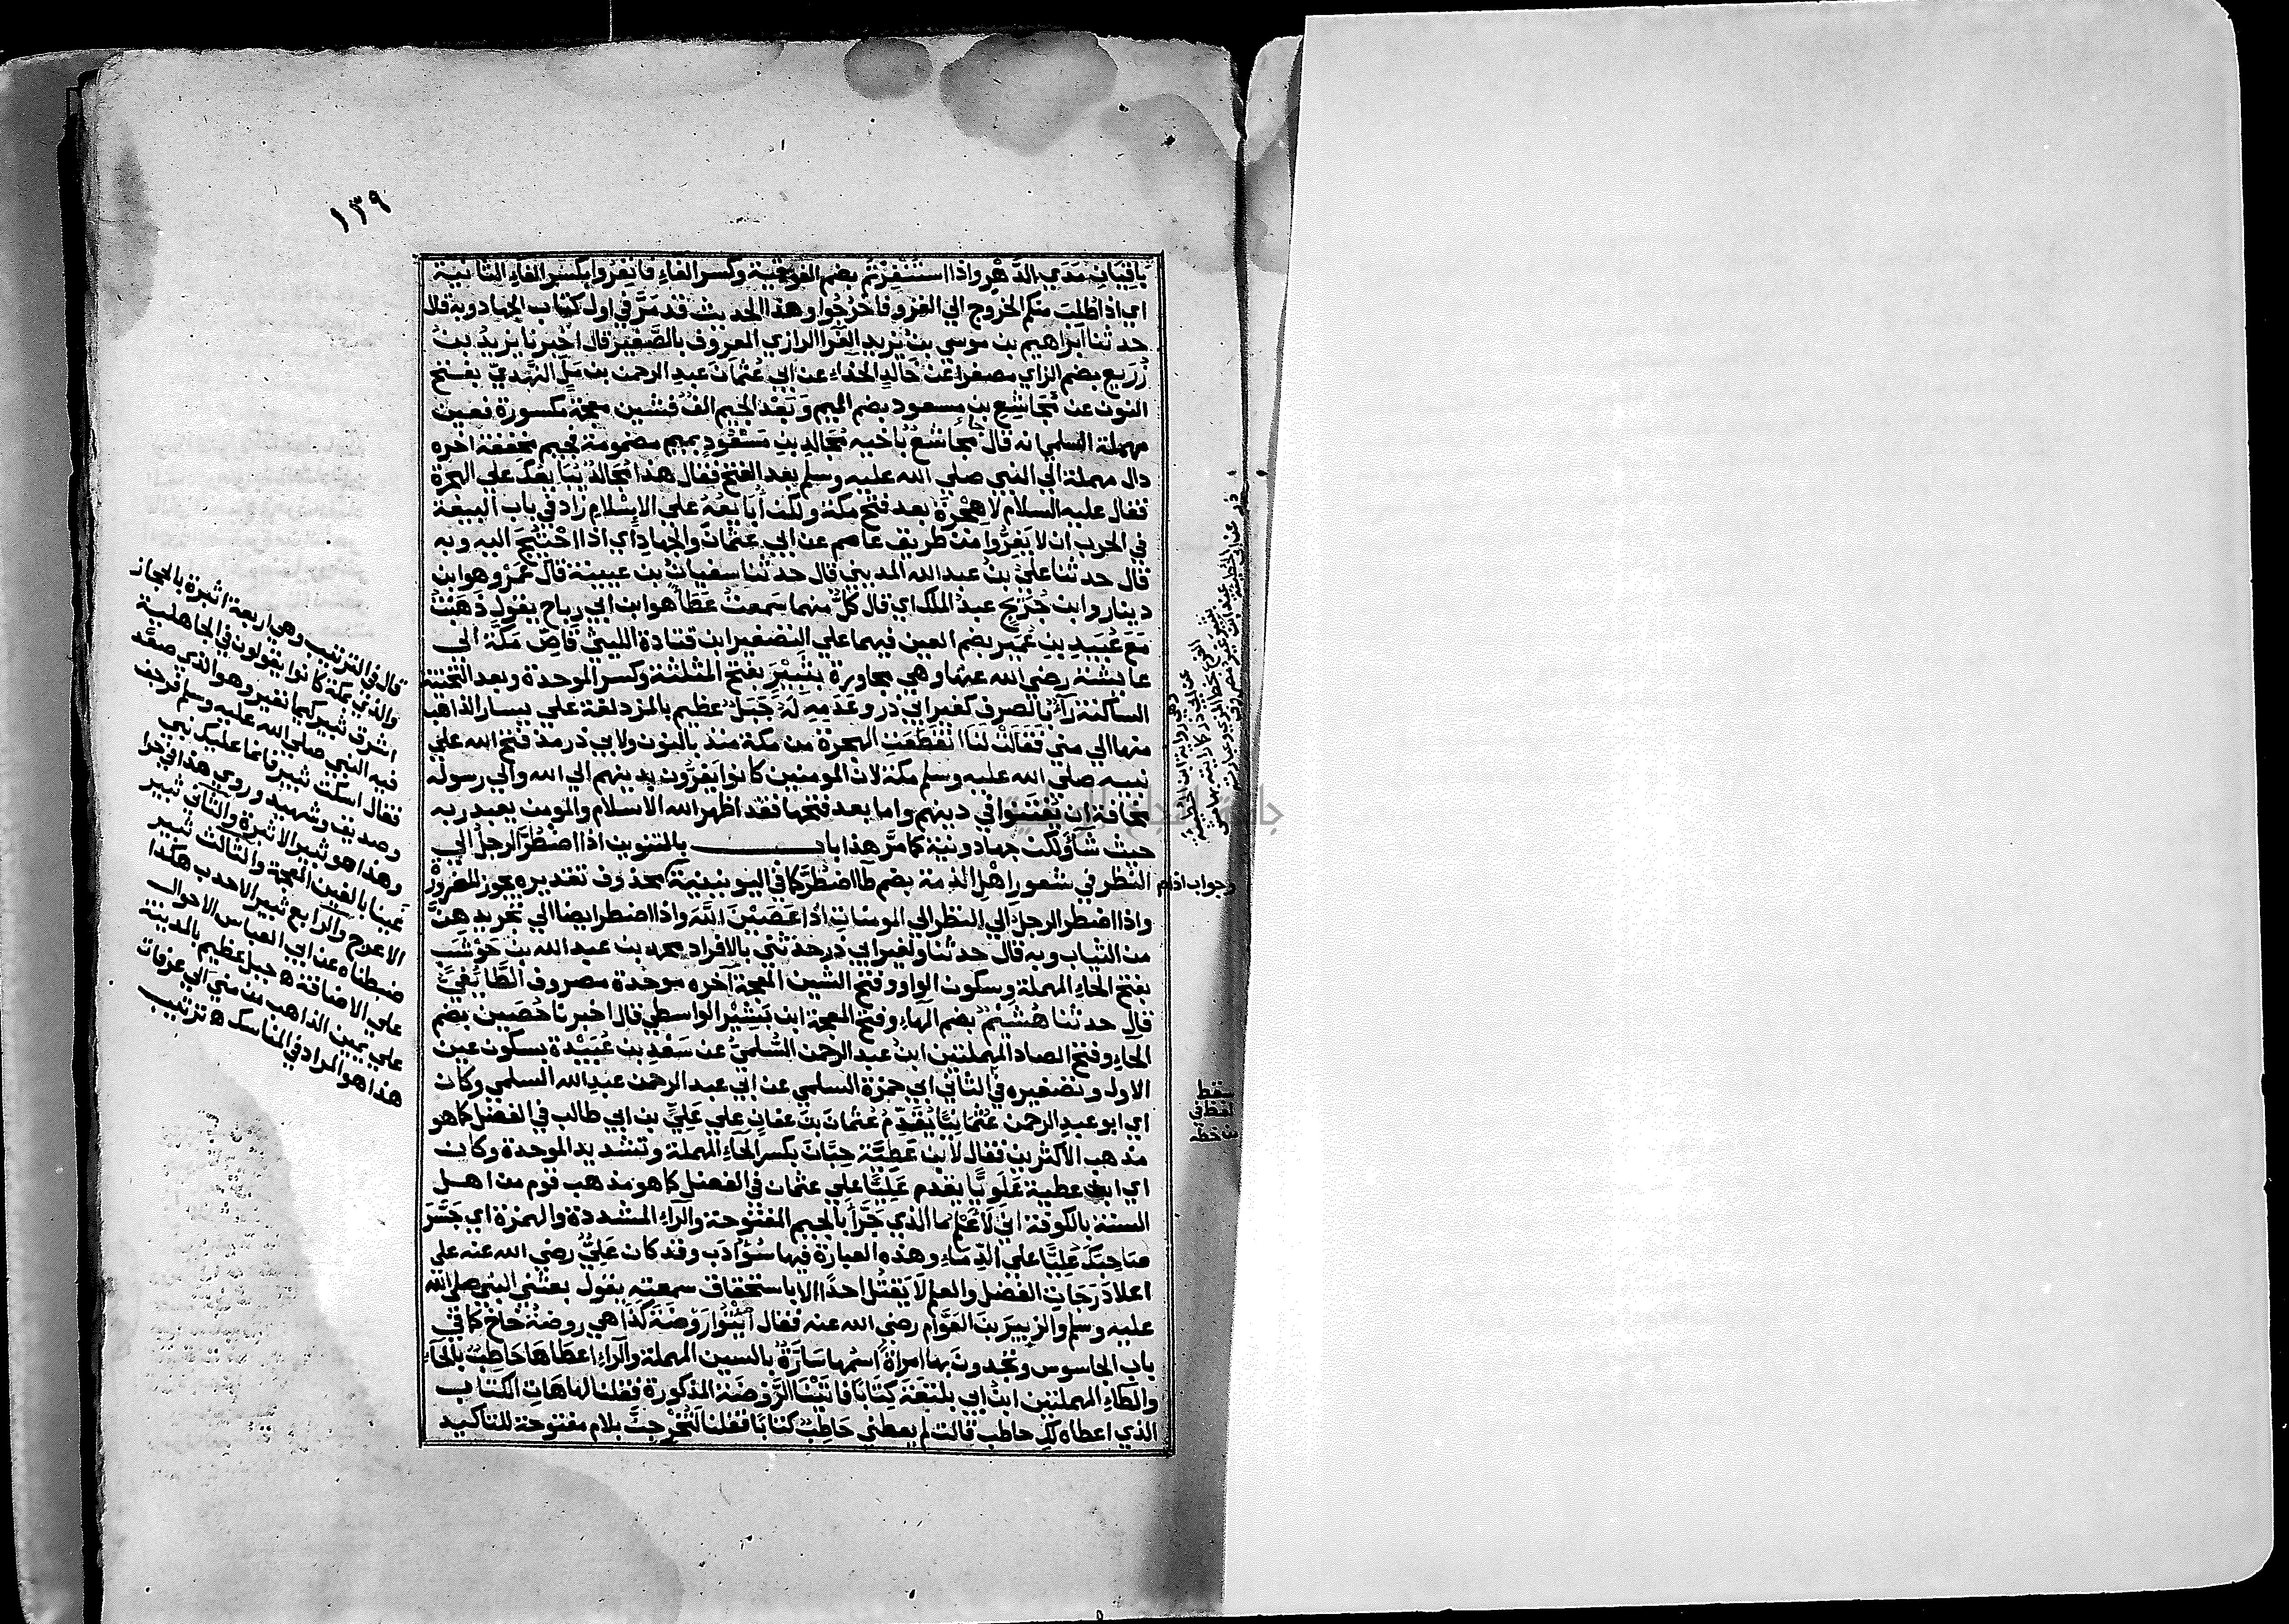 ١٣٩
باقيان مدي الدَّهْرِ واذا استُنْفِرْتُمْ بضم الفوقية وكسر الفاء فانفِرُوا بكسر الفاء الثانية
اي اذا طلبت منكم الخروج الي الغزو فاخرُجُوا وهذا الحديث قد مَرَّ في اول كتاب الجهاد وبه قال
حدثنا ابراهيم بن موسي بن يزيد الفرا الرازي المعروف بالصَّغير قال اخبرنا يزيدُ بنُ
زُرَيع بضم الزاي مصغرا عن خالدٍ الحذاء عن ابي عُثمَان عبدِ الرحمن بن مَلٍّ النَّهديّ بفتح
النون عن مُجَاشِعِ بن مسعود بضم الميم وبَعْد الجيم الف فشين معجمة مكسورة فعين
مهملة السلمي انه قال جاء مُجاشعٌ باخيه مُجَالِدِ بنِ مَسْعُودٍ بميم مضمومة فجيم مخففة اخره
دال مهملة الي النبي صلي الله عليه وسلم بعد الفتح فقال هذا مُجَالدٌ يُبَايعُكَ علي الهجرة
فقال عليه السلام لا هِجْرَةَ بعد فتح مكة ولكن أبايعُهُ علي الاِسْلامِ زاد في باب البيعة
في الحرب ان لا يَفِرُّوا من طريق عاصم عن ابي عثمانَ والجهادِ اي اذا احْتِيجَ اليه وبه
قال حدثنا عليُّ بنُ عبد الله المديني قال حدثنا سفيانُ بن عيينة قال عَمْرٌو هو ابن
دينار وابن جُرَيْجٍ عبدُ الملك اي قال كلٌّ منهما سَمعتُ عَطَاً هو ابن ابي رباح يقولُ ذَهَبْتُ
مَعَ عُبَيدِ بن عُمَير بضم العين فيهما علي التصغير ابن قتادة الليثي قَاصِّ مَكَّةَ الي
عايشة رضي الله عنها وهي مجاورة بِثَبِيْرَ بفتح المثلثة وكسر الموحدة وبعد التحتية
الساكنة رآءٌ بالصرف لغير ابي ذر وعَدَمِهِ لَهُ جَبَلٌ عظيم بالمزدلفة علي يسار الذاهب
منها الي مني فَقَالَتْ لَنَا انقَطَعَتِ الهجرة من مكة منذ بالنون ولابي ذر مذ فتح الله علي
نبيه صلي الله عليه وسلم مكة لان المومنين كانوا يَفرُّون بدينهم الي الله والي رسوله
مخافة ان يُفْتَنوا في دينهم واما بعد فتحها فقد اظهر الله الاسلام والمومن يعبد ربه
حيث شآء ولكن جهاد ونية كما مرَّ هذا باب بالتنوين اذا اضطُرَّ الرجلُ الي
النظر في شعور اهْلِ الذمة بضم طا اضطُرَّ كما في اليونينية محذوف تقديره يجوز للضرورة
واذا اضطر الرجلُ الي النظر الي المومناتِ اذا عَصَيْنَ اللهَ واذا اضطر ايضا الي تجريدِهِنَّ
من الثياب وبه قال حدثنا ولغير ابي ذر حدثني بالافراد محمد بن عبد الله بن حَوْشَب
بفتح الحاء المهملة وسكون الواو وفتح الشين المعجمة آخره موحدة مصروف الطَّائِفيُّ
قال حدثنا هُشَيْمٌ بضم الهاء وفتح المعجمة ابن بَشِيْرٍ الواسطي قال اخبرنا حُصَين بضم
الحاء وفتح الصاد المهملتين ابنُ عبد الرحمن السُّلميُّ عن سَعْدِ بن عُبَيْدة بسكون عين
الاول وتصغيره في الثاني ابي حمزة السلمي عن ابي عبد الرحمن عبدِ الله السلمي وكان
اي ابو عبدِ الرحمن عُثمانيًّا يُقَدِّمُ عُثمانَ بنَ عفان علي عَلِيِّ بن ابي طالب في الفضل كما هو
مذهب الاكثرين فقال لابن عَطِيَّة حِبَّانَ بكسر الحاء المهملة وتشديد الموحدة وكان
اي ابن عطية عَلَوِيًّا يقدم عَلِيًّا علي عثمان في الفضل كما هو مذهب قوم من اهل
السنة بالكوفة اني لاَعْلَمُ ما الذي جَرَّأَ بالجيم المفتوحة والراء المشددة والهمزة اي جَسَّرَ
صَاحِبَكَ عَلِيًّا علي الدِّمَاءِ وهذه العبارة فيها سُوُّ ادَب وقد كان عَلِيٌّ رضي الله عنه علي
اعلا دَرَجَاتِ الفضل والعلم لَا يَقتُل احدًا الا باستحقاق سمعته يقول بعثني النبي صلي الله
عليه وسلم والزبيرَ بنَ العَوَّامِ رضي الله عنه فقال ائْتُوا رَوْضَةَ كَذَا هي روضة خاخ كما في
باب الجاسوس وتجدونَ بها امراةً اسمها سَارَةُ بالسين المهملة والراء اعطَاها حَاطِبٌ بالحاء
والطاء المهملتين ابن ابي بلتعَةَ كِتابًا فاتَيْنَا الرَّوْضَةَ المذكورة فقلنا لها هَاتِ الكتاب
الذي اعطاهُ لكِ حاطب قالت لم يعطني حَاطِبٌ كتابًا فقلنا لَتُخْرجِنَّ بلام مفتوحة للتاكيد
وجواب اذا
سقط
لفظ في
من خطه
قال في الترتيب وهي اربعة اثبرة بالحجاز
والذي بمكة كانوا يقولون في الجاهلية
اشرق ثبير كيما نغير وهو الذي صعد
فيه النبي صلي الله عليه وسلم فرجف
فقال اسكن ثبير فانما عليك نبي
وصديق وشهيد وروي هذا في حرا
وهذا هو ثبير الاثبرة والثاني ثبير
غينا بالغين المعجمة والثالث ثبير
الاعرج والرابع ثبير الاحدب هكذا
ضبطناه عن ابي العباس الاحوال
علي الاضافة ه جبل عظيم بالمدينة
علي يمين الذاهب من مني الي عرفات
هذا هو المراد في المناسك ه ترتيب